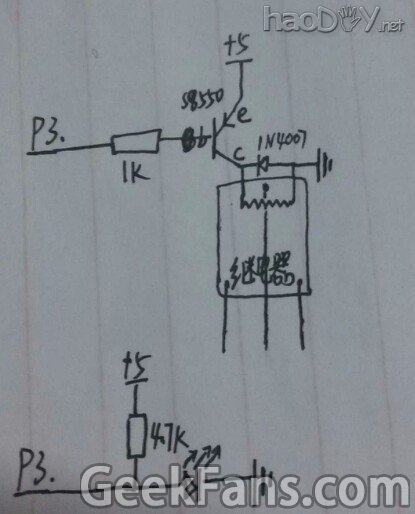 haoDIY.net
+5
S8550
P3.
b
e
1K
c
1N4007
继电器
+5
4.7K
P3.
GeekFans.com